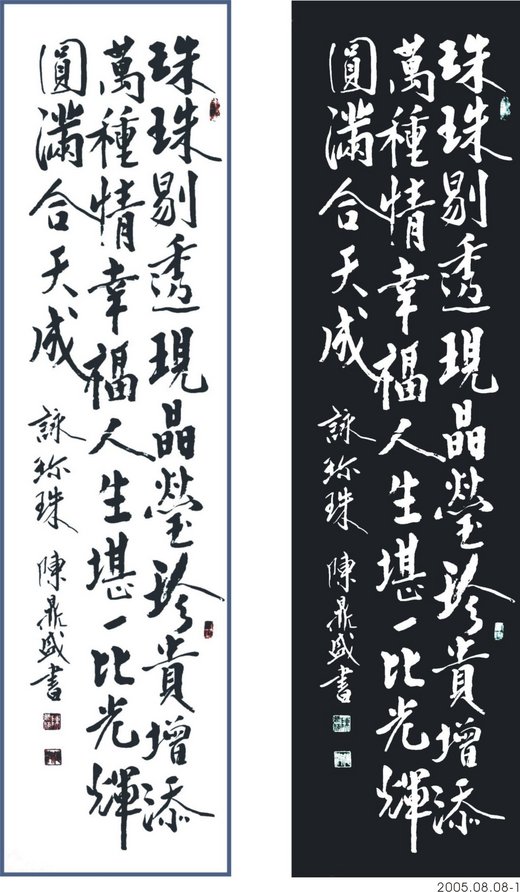 珠珠剔透現晶瑩珍貴增添
萬種情幸福人生堪一比光輝
圓滿合天成
詠珍珠 陳鼎盛書
珠珠剔透現晶瑩珍貴增添
萬種情幸福人生堪一比光輝
圓滿合天成
詠珍珠 陳鼎盛書
2005.08.08-1